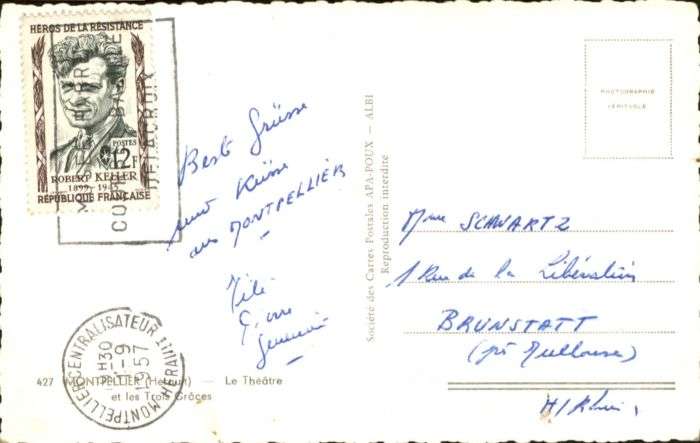 HÉROS DE LA RÉSISTANCE
POSTES
12F
ROBERT KELLER
1899-1945
RÉPUBLIQUE FRANÇAISE
DELACROIX
Beste Grüsse
und Küsse
aus MONTPELLIER
MONTPELLIER CENTRALISATEUR HERAULT
H30
-9
1957
427 MONTPELLIER (Hérault) — Le Théâtre
et les Trois Grâces
Société des Cartes Postales APA-POUX — ALBI
Reproduction interdite
PHOTOGRAPHIE
VÉRITABLE
Mme SCHWARTZ
1 Rue de la Libération
BRUNSTATT
(près Mulhouse)
H/Rhin.